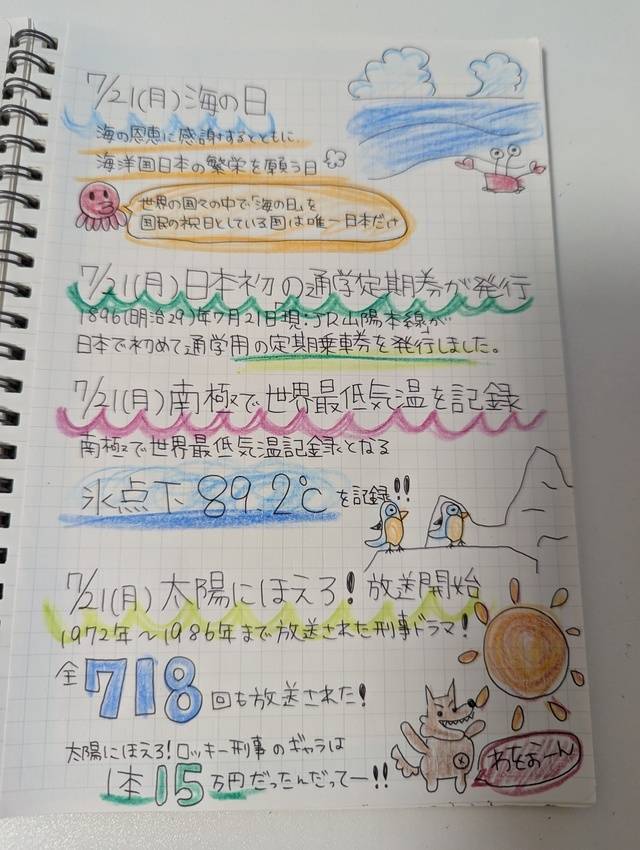 7/21(月)海の日
海の恩恵に感謝するとともに、
海洋国日本の繁栄を願う日
世界の国々の中で「海の日」を
国民の祝日としている国は唯一日本だけ
7/21(月)日本初の通学定期券が発行
1896(明治29)年7月21日「現:JR山陽本線」が
日本で初めて通学用の定期乗車券を発行しました。
7/21(月)南極で世界最低気温を記録
南極で世界最低気温記録となる
氷点下 89.2℃を記録!!
7/21(月)太陽にほえろ!放送開始
1972年～1986年まで放送された刑事ドラマ!
全718回も放送された!
太陽にほえろ!ロッキー刑事のギャラは
1本15万円だったんだってー!!
わをぉーん